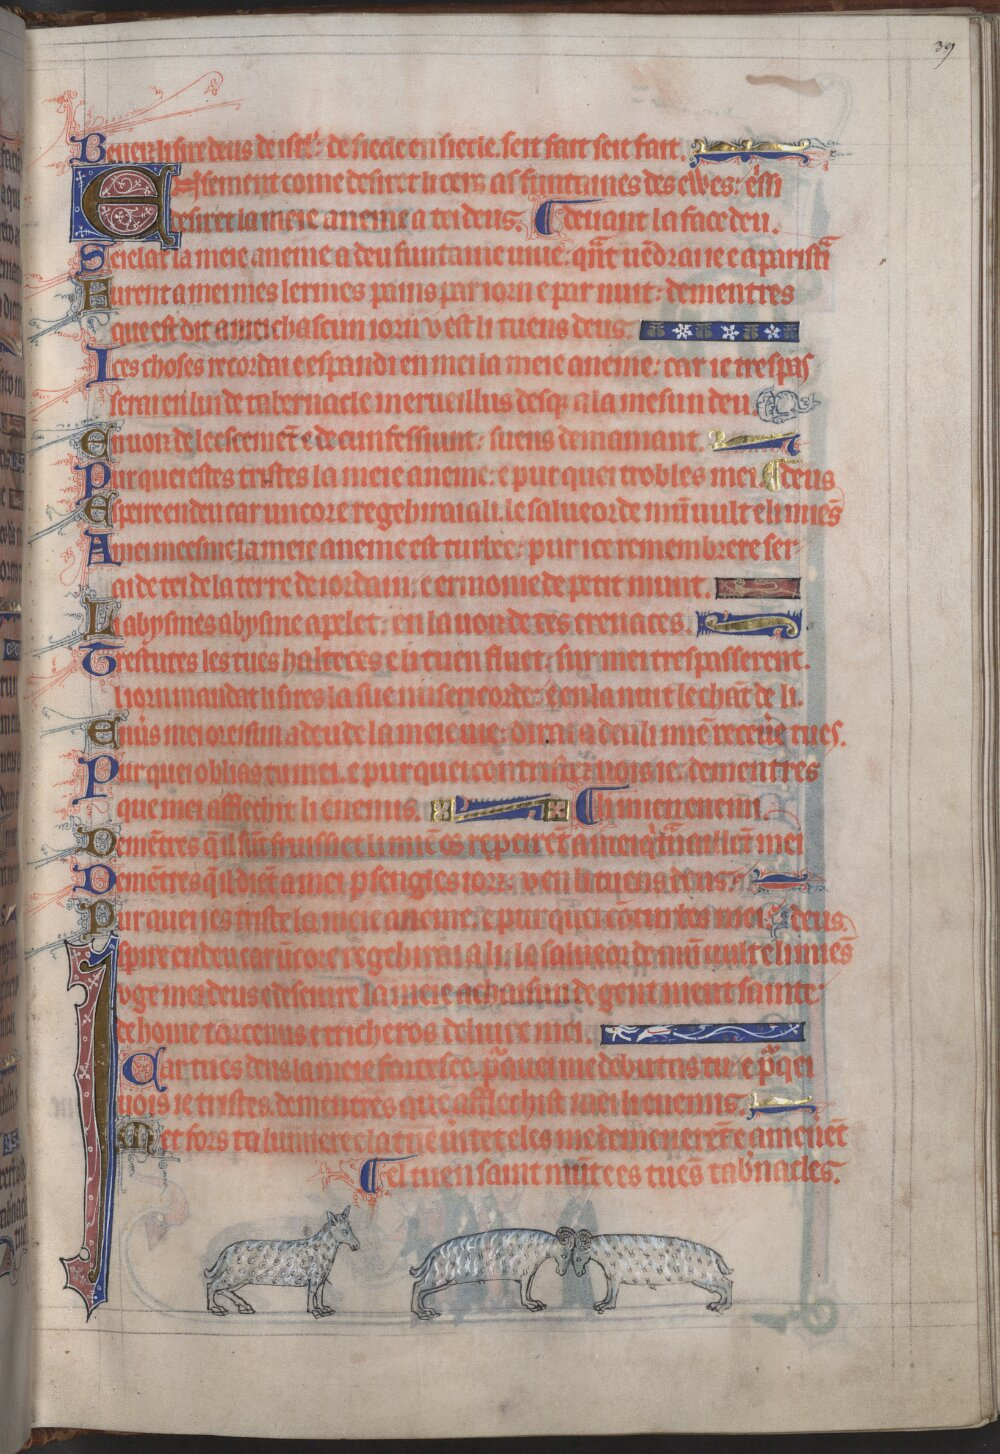 39
Beneeit sire deus de isrl: de siecle en siecle. seit fait seit fait.
Eisement come desiret li cers as funtaines des ewes: essi
desiret la meie aneme a tei deus. devant la face deu.
Seielat la meie aneme a deu funtaine vive: qñt vẽdrai ie e aparistrai
Furent a mei mes lermes pains par iorn e par nuit: dementres
que est dit a mei chascun iorn v est li tuens deus.
Ices choses recordai e espandi en mei la meie aneme: car ie trespas
serai en liu de tabernacle merveillus desq; a la mesun deu
En voiz de leescemẽt e de cunfessiun: suens de maniant.
Pur quei estes tristes la meie aneme: e pur quei trobles mei. deus
Espeire en deu car uncore regehirai a li. le salveor de mũ vult e li miẽs
A mei meesme la meie aneme est turlee: pur ice remembrere ser
ai de tei de la terre de iordain. e ermonie de petit munt.
Li abysmes abysme apelet: en la voiz de tes crevaces.
Trestutes les tues halteces e li tuen fluet: sur mei trespasserent.
El iorn mandat li sires la sue misericorde: e en la nuit le chãt de li.
Envis mei oreisun a deu de la meie vie: dirrai a deu li miẽ receve tu es.
Pur quei oblias tu mei. e pur quei contristez vois ie: dementres
que mei afflechit li enemis. li mien enemi.
Demẽtres q̃
Demẽtres q̃ il diẽt a mei p sengles iorz. v est li tuens deus.
Pur quei ies triste la meie aneme: e pur quei cõturbes mei. deus.
Espire en deu car ũcore regehirai a li. le salveor de mũ vult e li miẽs
Juge mei deus e desevre la meie achaisun de gent nient sainte:
de home torcenus e tricheros delivre mei.
Car tu es deus la meie force: pq̃uei me debutas tu: e p̃q̃i
vois ie tristes dementres que afflechist mei li enemis.
Met fors ta lumiere e la tue vtet eles me demenerẽt e amenẽt
el tuen saint mũt e es tuẽs tab̃nacles.